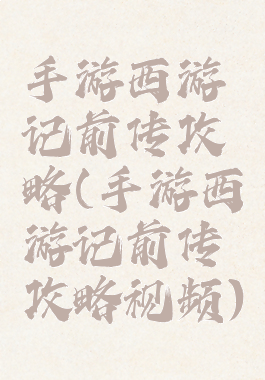 手游西游
记前传攻
略(手游西
游记前传
攻略视频)